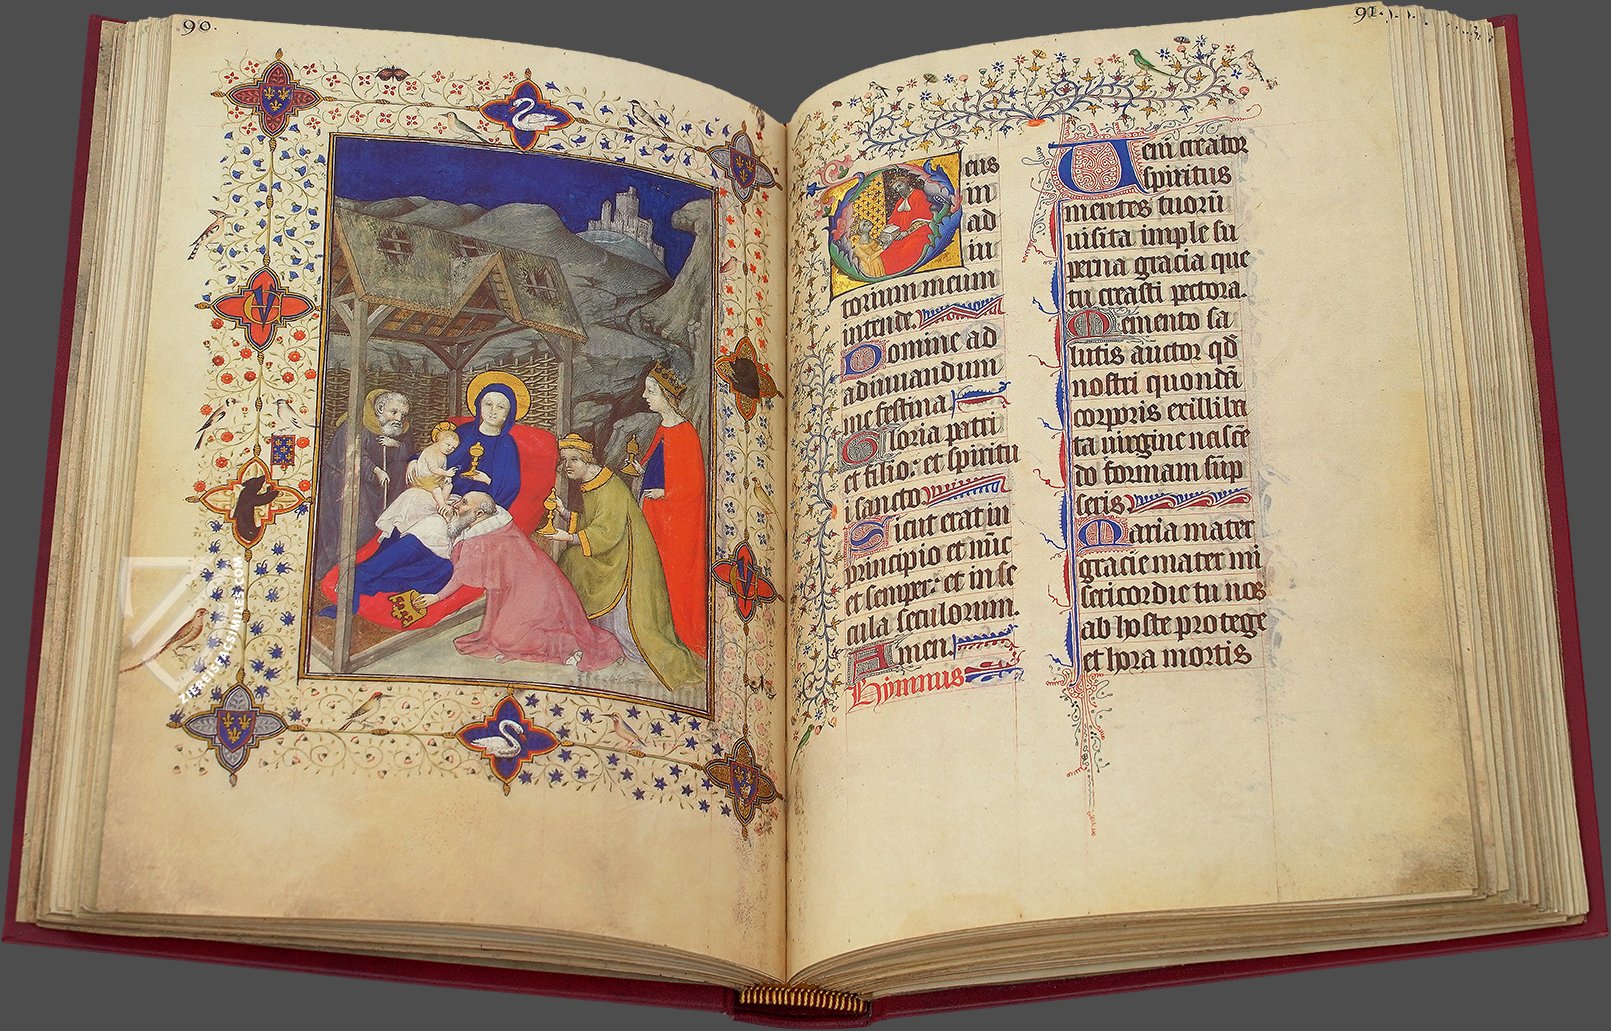 90.
91.
Deus
in
ad
iu
torium meum
intende.
Domine ad
adiuuandum
me festina
Gloria patri
et filio: et spiritu
i sancto
Sicut erat in
principio et nūc
et semper: et in se
cula seculorum.
Amen.
Hymnus
Ueni creator
spiritus
mentes tuorū
uisita imple su
perna gracia que
tu creasti pectora.
Memento sa
lutis auctor qd̄
nostri quondā
corporis ex illiba
ta uirgine nascē
do formam sūp
seris
Maria mater
gracie mater mi
sericordie tu nos
ab hoste protege
et hora mortis
ZIEREIS FACSIMILES.COM